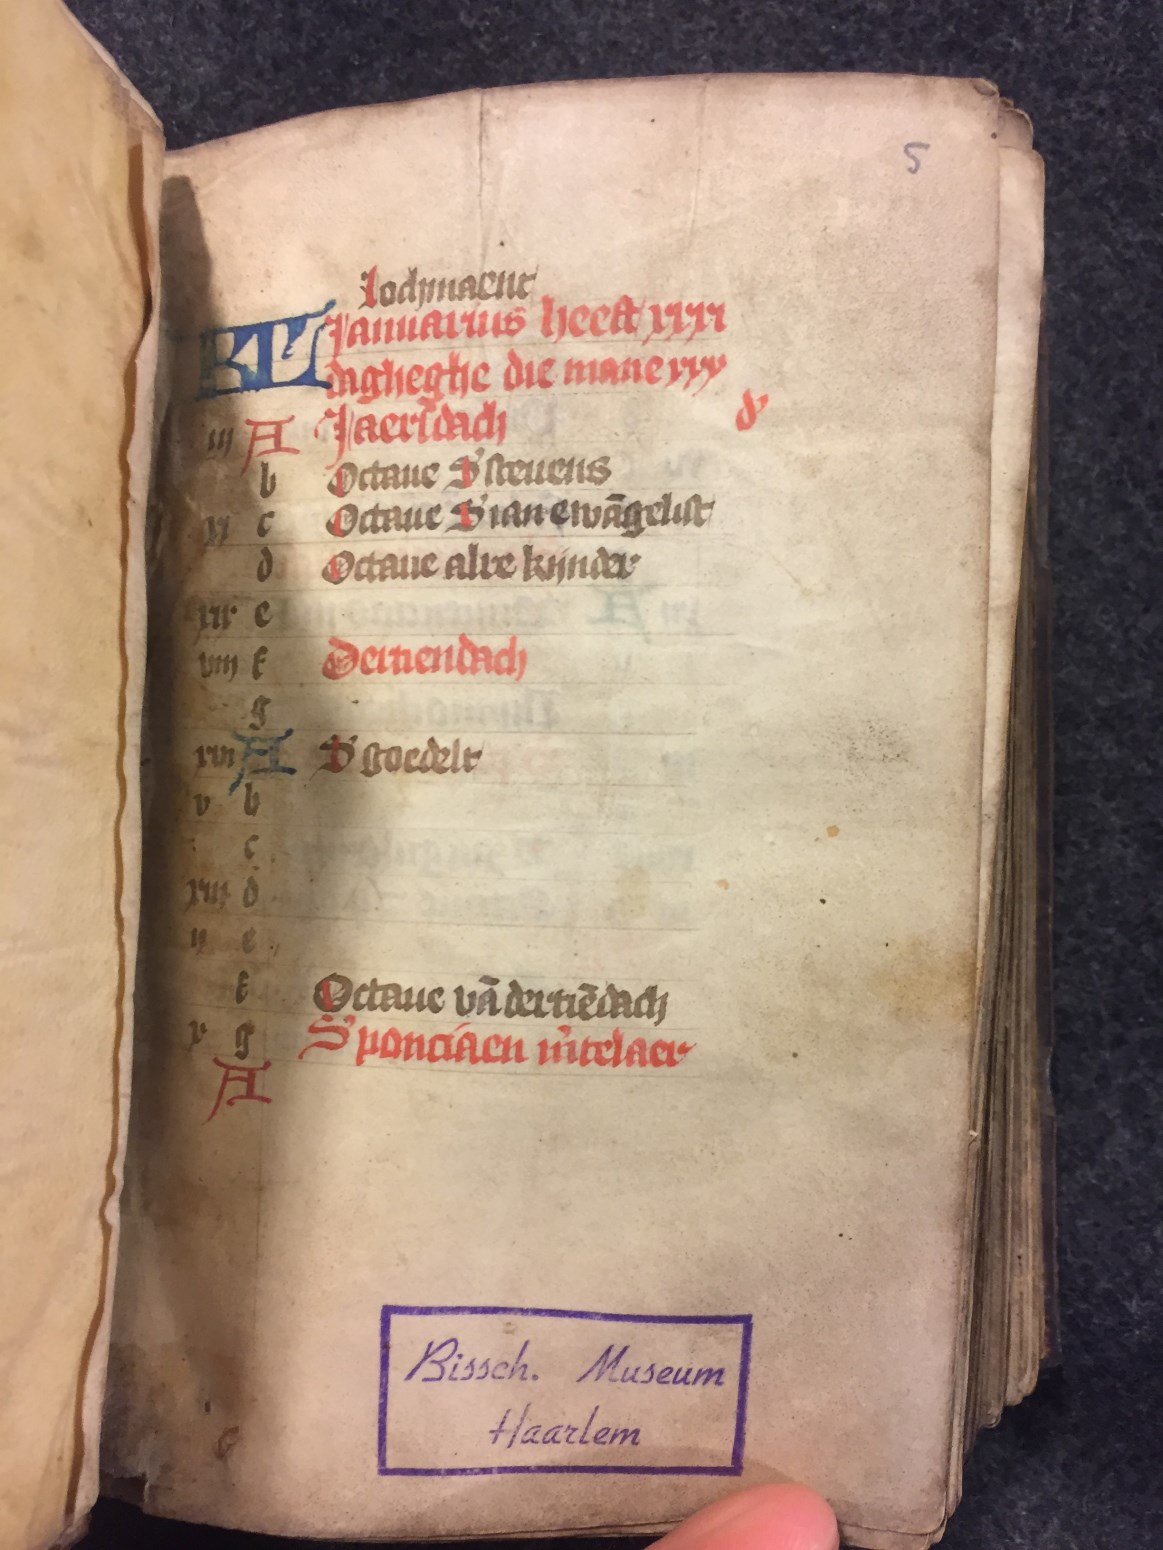 5
Lochmaent
KL Januarius heeft xxxi
daghe ende die mane xxx
iii A Jaersdach
b Octaue S steuens
xi c Octaue S ian ewāgelist
d Octaue alre kijnder
xix e
viii f Dertiendach
g
xvi A S goedele
v b
c
xiii d
ii e
f Octaue vā dertiēdach
x g S ponciaen m̄telaer
A
Bissch. Museum
Haarlem